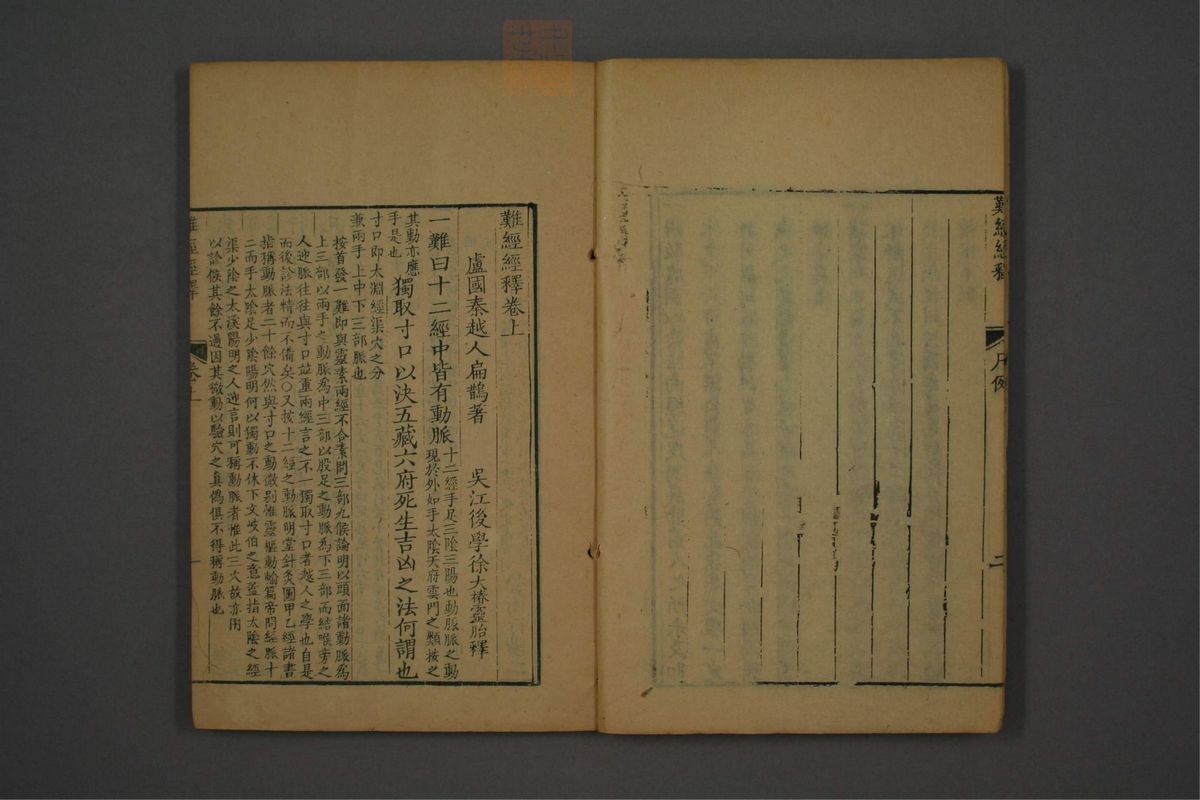 難經經釋
凡例
二
難經經釋卷上
盧國秦越人扁鵲著 吳江後學徐大椿靈胎釋
一難曰十二經中皆有動脈
十二經手足三陰三陽也動脈脈之動
現於外如手太陰天府雲門之類按之
其動亦應
手是也
獨取寸口以決五藏六府死生吉凶之法何謂也
寸口即太淵經渠穴之分
兼兩手上中下三部脈也
按首發一難即與靈素兩經不合素問三部九候論明以頭面諸動脈爲
上三部以兩手之動脈爲中三部以股足之動脈爲下三部而結喉旁之
人迎脈往往與寸口並重兩經言之不一獨取寸口者越人之學也自是
而後診法精而不備矣〇又按十二經之動脈明堂針灸圖甲乙經諸書
指稱動脈者二十餘穴然與寸口之動微別惟靈樞動輸篇帝問經脈十
二而手太陰足少陰陽明何以獨動不休下文岐伯之意蓋指太陰之經
渠少陰之太溪陽明之人迎言則可稱動脈者惟此三穴故亦用
以診候其餘不過因其微動以驗穴之真僞俱不得稱動脈也
難經經釋
卷上
一